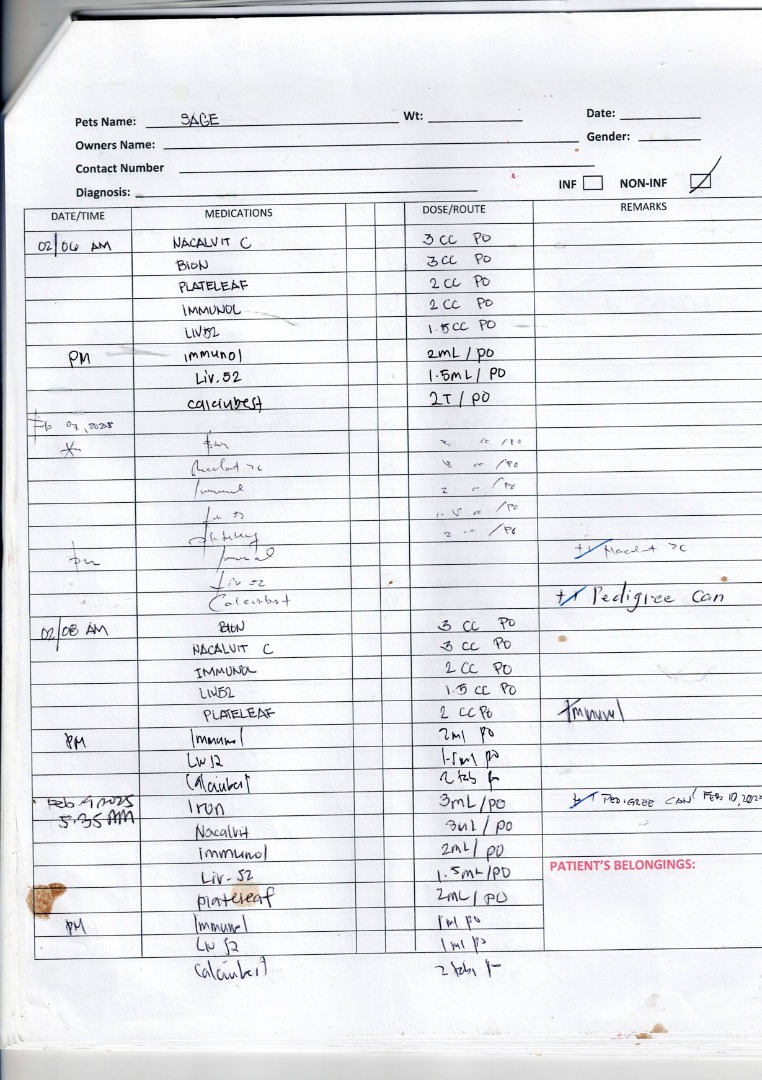 Pets Name: SAGE Wt: Date:
Owners Name: Gender:
Contact Number
Diagnosis: INF NON-INF
DATE/TIME MEDICATIONS DOSE/ROUTE REMARKS
02/06 AM NACALVIT C 3 CC PO
BION 3 CC PO
PLATELEAF 2 CC PO
IMMUNOL 2 CC PO
LIV52 1.5 CC PO
PM immunol 2mL / po
Liv.52 1.5mL / PO
calciubest 2T / PO
Feb 07, 2025
/PO
/PO
Immunol 2 /PO
1.5 /PO
2 /PO
pm
Liv 52
Calciubest Pedigree Can
02/08 AM BION 3 CC PO
NACALVIT C 3 CC PO
IMMUNOL 2 CC PO
LIV52 1.5 CC PO
PLATELEAF 2 CC PO Immunol
PM Immunol 2ml po
Liv 52 1.5ml po
Calciubest 2 tab
Feb 9, 2025 Iron 3mL/po PEDIGREE CAN FEB 10, 202
5:35 AM
Nacalvit 3mL / po
immunol 2mL / po
Liv-52 1.5mL/PO
PATIENT'S BELONGINGS:
plateleaf 2mL / PO
PM Immunol 1ml po
Liv 52 1ml po
calciubest 2 tab